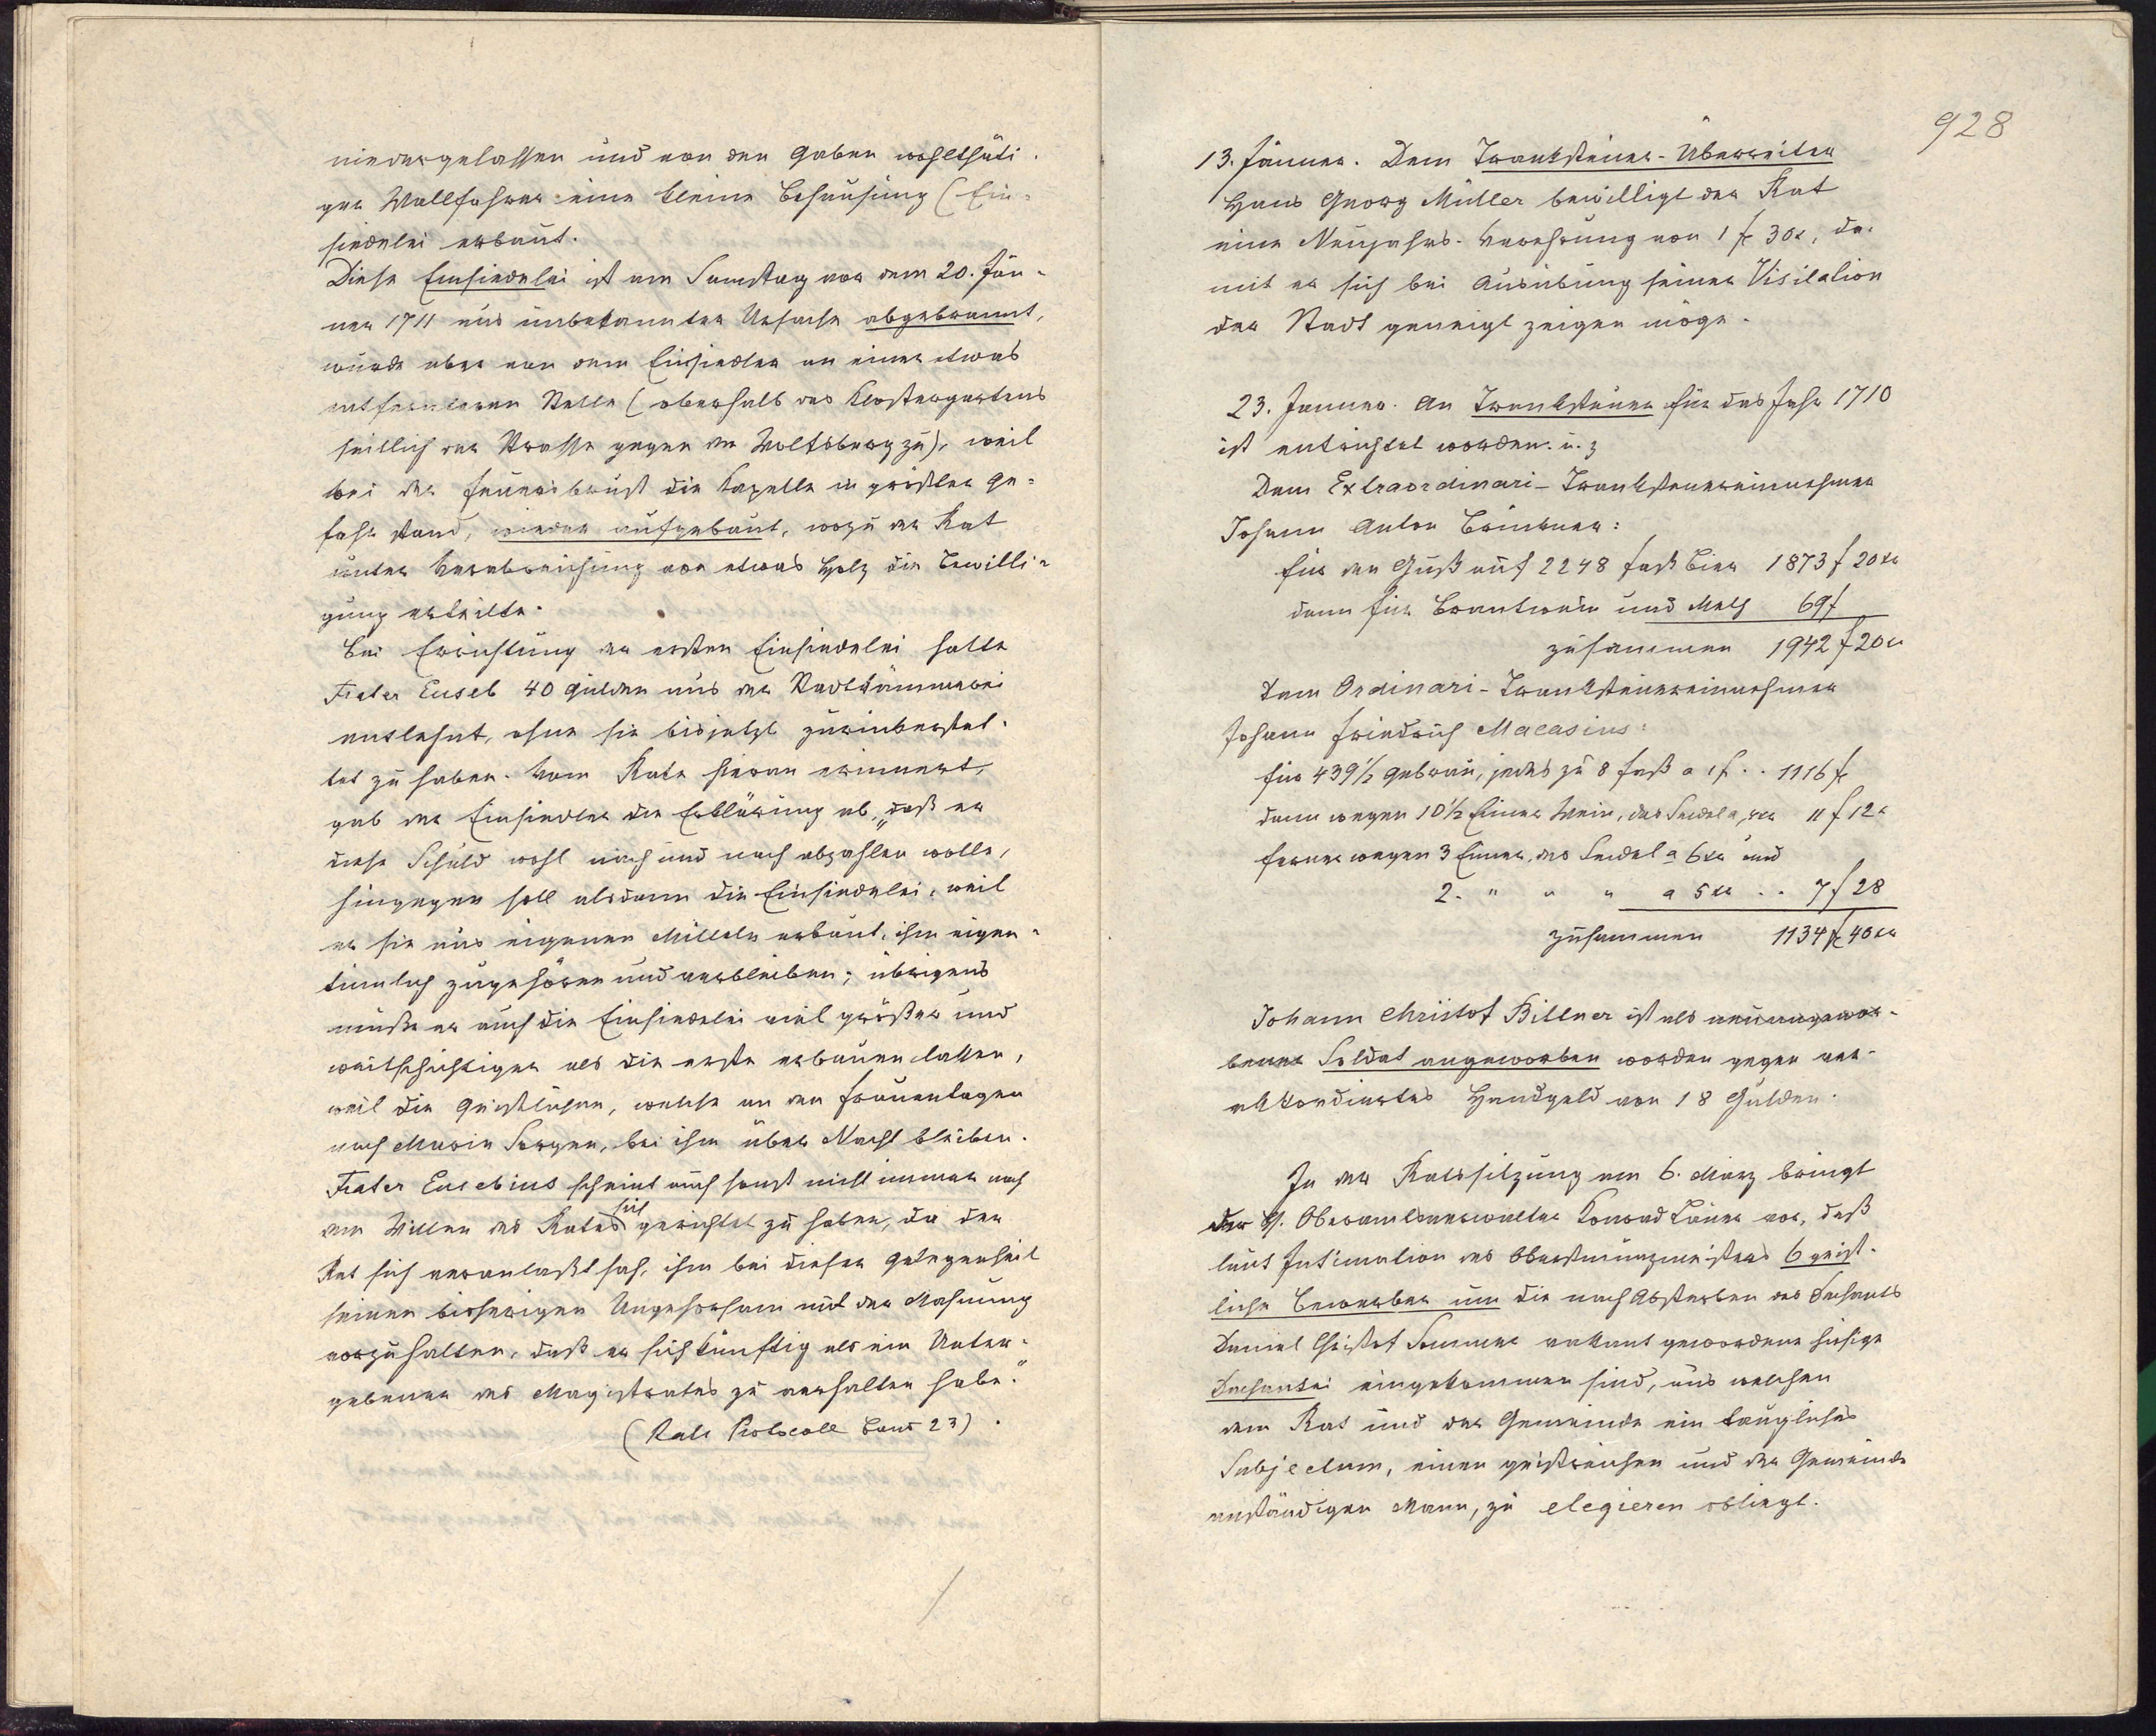 niedergelassen und von den Gaben wohlthäti-
ger Wallfahrer eine kleine Behausung (Ein-
siedelei erbaut.
Diese Einsiedelei ist am Samstag vor dem 20. Jän-
ner 1711 aus unbekannter Ursache abgebrannt,
wurde aber von dem Einsiedler an einer etwas
entfernteren Stelle (oberhalb des Klostergartens
seitlich der Strasse gegen den Wolfsberg zu), weil
bei der Feuersbrunst die Kapelle in größter Ge-
fahr stand, wieder aufgebaut, wozu der Rat
unter Verabreichung von etwas Holz die Bewilli-
gung erteilte.
Bei Errichtung der ersten Einsiedelei hatte
Frater Euseb 40 Gulden aus der Stadtkämmerei
entlehnt, ohne sie bisjetzt zurückerstat-
tet zu haben. Vom Rate hieran erinnert,
gab der Einsiedler die Erklärung ab, „daß er
diese Schuld wohl nach und nach abzahlen wolle,
hingegen soll alsdann die Einsiedelei, weil
er sie aus eigenen Mitteln erbaut, ihm eigen-
tümlich zugehören und verbleiben; übrigens
müsse er auch die Einsiedelei viel größer und
weitschichtiger als die erste erbauen lassen,
weil die Geistlichen, welche an den Frauentagen
nach Maria Sorgen, bei ihm über Nacht bleiben.
Frater Eusebius scheint auch sonst nicht immer nach
dem Willen des Rates sich gerichtet zu haben, da der
Rat sich veranlaßt sah, ihm bei dieser Gelegenheit
seinen bisherigen Ungehorsam mit der Mahnung
vorzuhalten, daß er sich künftig als ein Unter-
gebener des Magistrates zu verhalten habe."
(Rats Protocoll Band 23).
928
13. Jänner. Dem Tranksteuer-Überreiter
Hans Georg Müller bewilligt der Rat
eine Neujahrs-Verehrung von 1 f 30x, da-
mit er sich bei Ausübung seiner Visitation
der Stadt geneigt zeigen möge.
23. Jänner. An Tranksteuer für das Jahr 1710
ist entrichtet worden u. z
Dem Extraordinari-Tranksteuereinnehmer
Johann Anton
für den Guß auf 2248 Faß Bier 1873 f 20 xr
dann für Brantwein und Meth 69 f
zusammen 1942 f 20 xr
Dem Ordinari-Tranksteuereinnehmer
Johann Friedrich Macasius:
für 439½ Gebräu, jedes zu 8 Faß a 1 f . . 1116 f
dann wegen 10½ Eimer Wein, das Seidel a xr 11 f 12 x
ferner wegen 3 Eimer, das Seidel a 6 xr und
2. " " " a 5 xr . . 7 f 28
zusammen 1134 f 40 xr
Johann Christof Billner ist als neuangewor-
bener Soldat angeworben worden gegen ver-
akkordiertes Handgeld von 18 Gulden.
In der Ratssitzung am 6. März bringt
der H. Oberamtsverwalter Konrad vor, daß
laut Intimation des Oberstmünzmeisters 6 geist-
liche Bewerber um die nach Absterben des Dechants
Daniel Christof Sommer vakant gewordene hiesige
Dechantei eingekommen sind, aus welchen
dem Rat und der Gemeinde ein taugliches
Subjectum, einen geistreichen und der Gemeinde
anständigen Mann, zu elegieren obliegt.